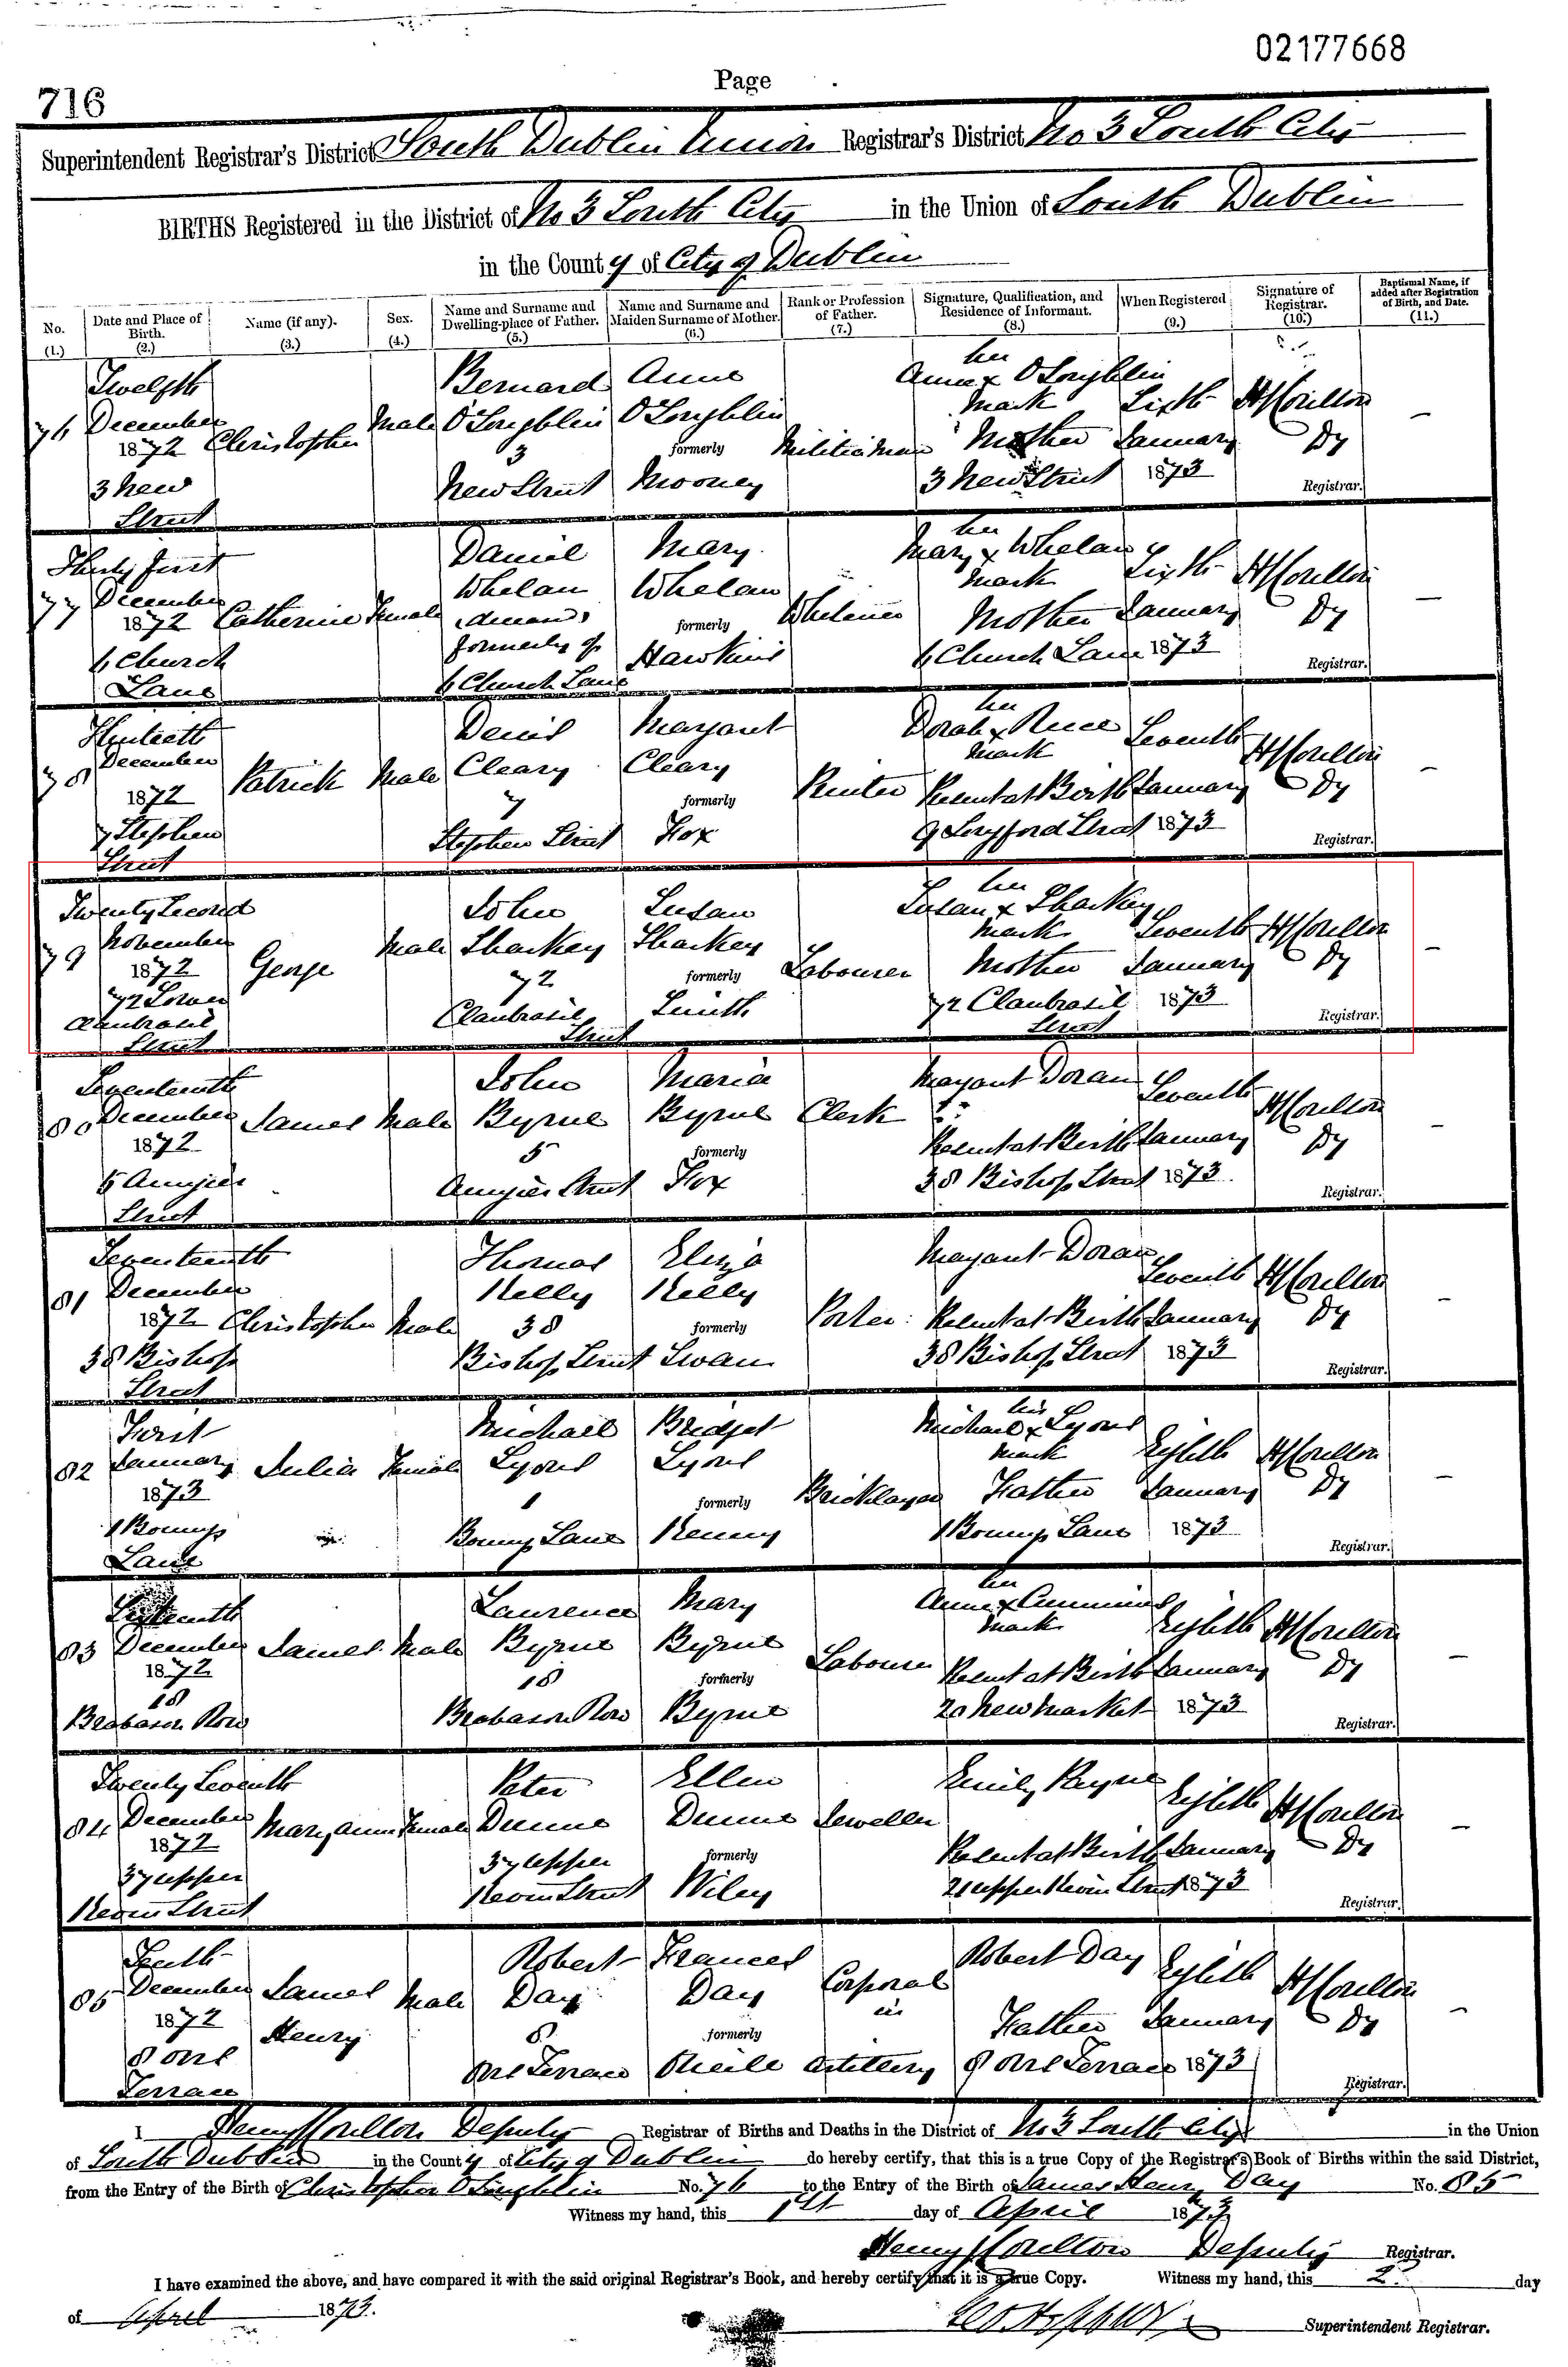 02177668
Page
716
Superintendent Registrar's District South Dublin Union Registrar's District No 3 South City
BIRTHS Registered in the District of No 3 South City in the Union of South Dublin
in the County of City of Dublin
No. (1.) Date and Place of Birth. (2.) Name (if any). (3.) Sex. (4.) Name and Surname and Dwelling-place of Father. (5.) Name and Surname and Maiden Surname of Mother. (6.) Rank or Profession of Father. (7.) Signature, Qualification, and Residence of Informant. (8.) When Registered (9.) Signature of Registrar. (10.) Baptismal Name, if added after Registration of Birth, and Date. (11.)
76 Twelfth December 1872 3 New Street Christopher Male Bernard O'Loughlin 3 New Street Anne O'Loughlin formerly Mooney Militia Man Anne x O'Loughlin her mark Mother 3 New Street Sixth January 1873 Dy Registrar. —
77 Thirty first December 1872 6 Church Lane Catherine Female Daniel Whelan formerly of 6 Church Lane Mary Whelan formerly Hawkins Mary x Whelan her mark Mother 6 Church Lane Sixth January 1873 Dy Registrar. —
78 Thirtieth December 1872 7 Stephen Street Patrick Male Denis Cleary 7 Stephen Street Margaret Cleary formerly Fox Printer Dorah x her mark Present at Birth 9 Longford Street Seventh January 1873 Dy Registrar. —
79 Twenty Second November 1872 72 Lower Clanbrasil Street George Male John Sharkey 72 Clanbrasil Street Susan Sharkey formerly Smith Labourer Susan x Sharkey her mark Mother 72 Clanbrasil Street Seventh January 1873 Dy Registrar. —
80 Seventeenth December 1872 5 Aungier Street James Male John Byrne 5 Aungier Street Maria Byrne formerly Fox Clerk Margaret Doran Present at Birth 38 Bishop Street Seventh January 1873 Dy Registrar. —
81 Seventeenth December 1872 38 Bishop Street Christopher Male Thomas Kelly 38 Bishop Street Eliza Kelly formerly Swan Porter Margaret Doran Present at Birth 38 Bishop Street Seventh January 1873 Dy Registrar. —
82 First January 1873 1 Lane Julia Female Michael Lyons 1 Lane Bridget Lyons formerly Kenny Bricklayer Michael x Lyons his mark Father 1 Lane Eighth January 1873 Dy Registrar. —
83 Sixteenth December 1872 18 Brabazon Row James Male Laurence Byrne 18 Brabazon Row Mary Byrne formerly Byrne Labourer Anne x Cummins her mark Present at Birth 20 New Market Eighth January 1873 Dy Registrar. —
84 Twenty Seventh December 1872 37 Upper Kevin Street Mary Anne Female Peter Dunne 37 Upper Kevin Street Ellen Dunne formerly Wiley Jeweller Emily Payne Present at Birth 21 Upper Kevin Street Eighth January 1873 Dy Registrar. —
85 Tenth December 1872 8 Terrace James Henry Male Robert Day 8 Terrace Frances Day formerly Corporal in Artillery Robert Day Father 8 Terrace Eighth January 1873 Dy Registrar. —
I Henry Deputy Registrar of Births and Deaths in the District of No 3 South City in the Union
of South Dublin in the County of City of Dublin do hereby certify, that this is a true Copy of the Registrar's Book of Births within the said District,
from the Entry of the Birth of Christopher O'Loughlin No. 76 to the Entry of the Birth of James Henry Day No. 85
Witness my hand, this 1st day of April 1873
Henry Deputy Registrar.
I have examined the above, and have compared it with the said original Registrar's Book, and hereby certify that it is a true Copy. Witness my hand, this 2 day
of April 1873.
Superintendent Registrar.